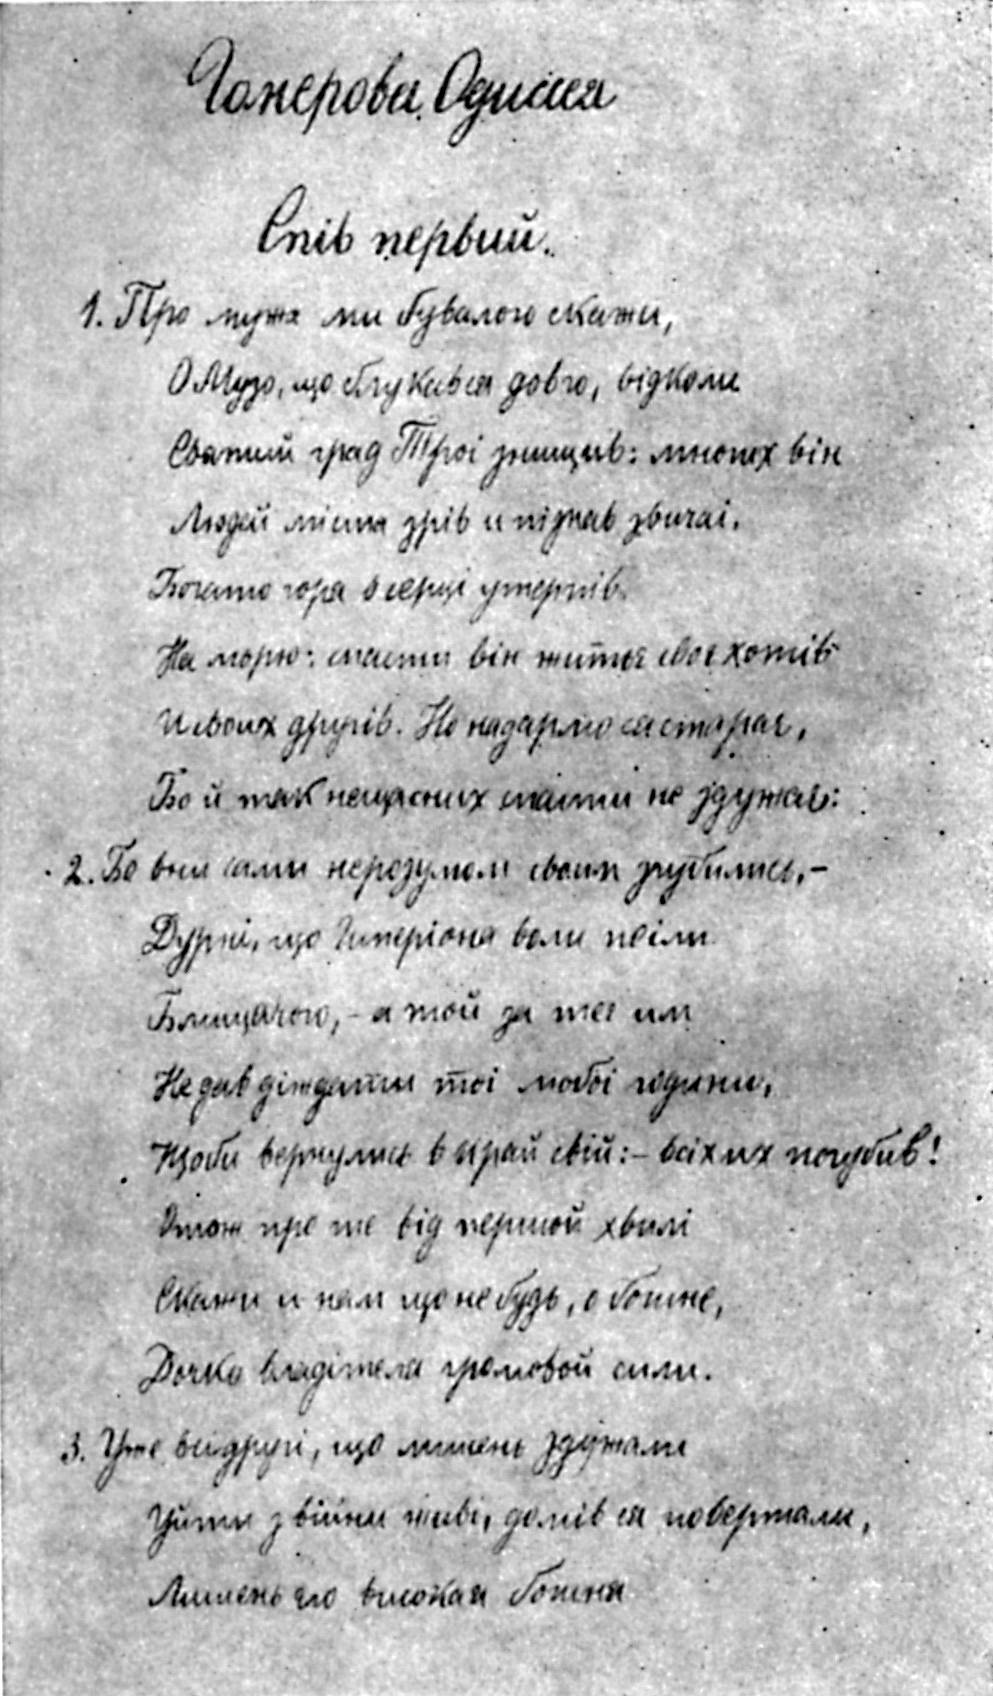 Гомерова Одиссея
Спів первий.
1. Про мужа ми бувалого скажи,
О Музо, що блукався довго, відколи
Святий град Трої знищив: многих він
Людей міста зрів и пізнав звичаї.
Богато горя в серці утерпів
На морю: спасти він житьє своє хотів
И своих другів. Но надармо ся старає,
Бо й так нещасних спасти не здужає:
2. Бо вни сами нерозумом своим згубились, –
Дурні, що Гиперіона воли поїли
Блищачого, – а той за теє им
Не дав діждати тої любої години,
Щоби вернулись в край свій: – всіх их погубив!
Отож про те від першой хвилі
Скажи и нам що небудь, о богине,
Дочко владітеля громовой сили.
3. Уже всі другі, що лишень здужали
Уйти з війни живі, домів ся повертали,
Лишень го високая богиня